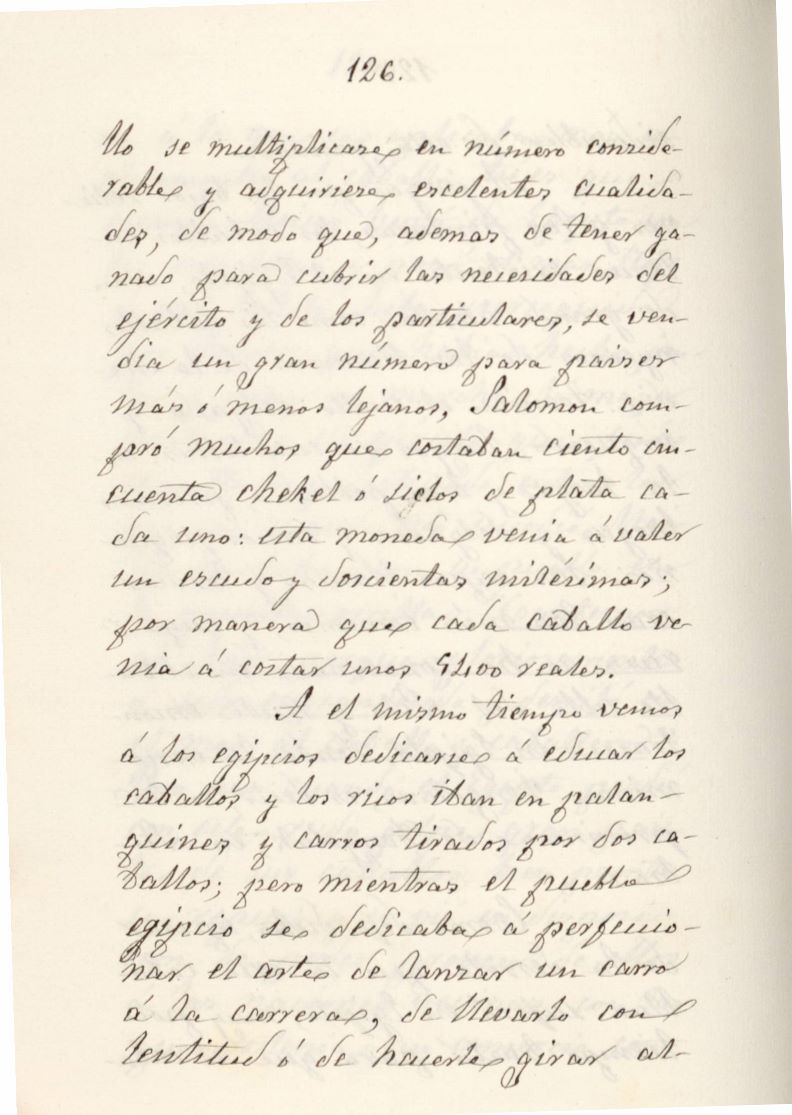 126.
llo se multiplicase en número conside-
rable y adquiriese escelentes cualida-
des, de modo que, ademas de tener ga-
nado para cubrir las necesidades del
ejército y de los particulares, se ven-
dia un gran número para paises
más ó menos lejanos, Salomon com-
pró muchos que costaban ciento cin-
cuenta chekel ó siclos de plata ca-
da uno: esta moneda venia á valer
un escudo y doscientas milésimas;
por manera que cada caballo ve-
nia á costar unos 5400 reales.
A el mismo tiempo vemos
á los egipcios dedicarse á educar los
caballos y los ricos iban en palan-
quines y carros tirados por dos ca-
ballos; pero mientras el pueblo
egipcio se dedicaba á perfeccio-
nar el arte de lanzar un carro
á la carrera, de llevarlo con
lentitud ó de hacerle girar al-